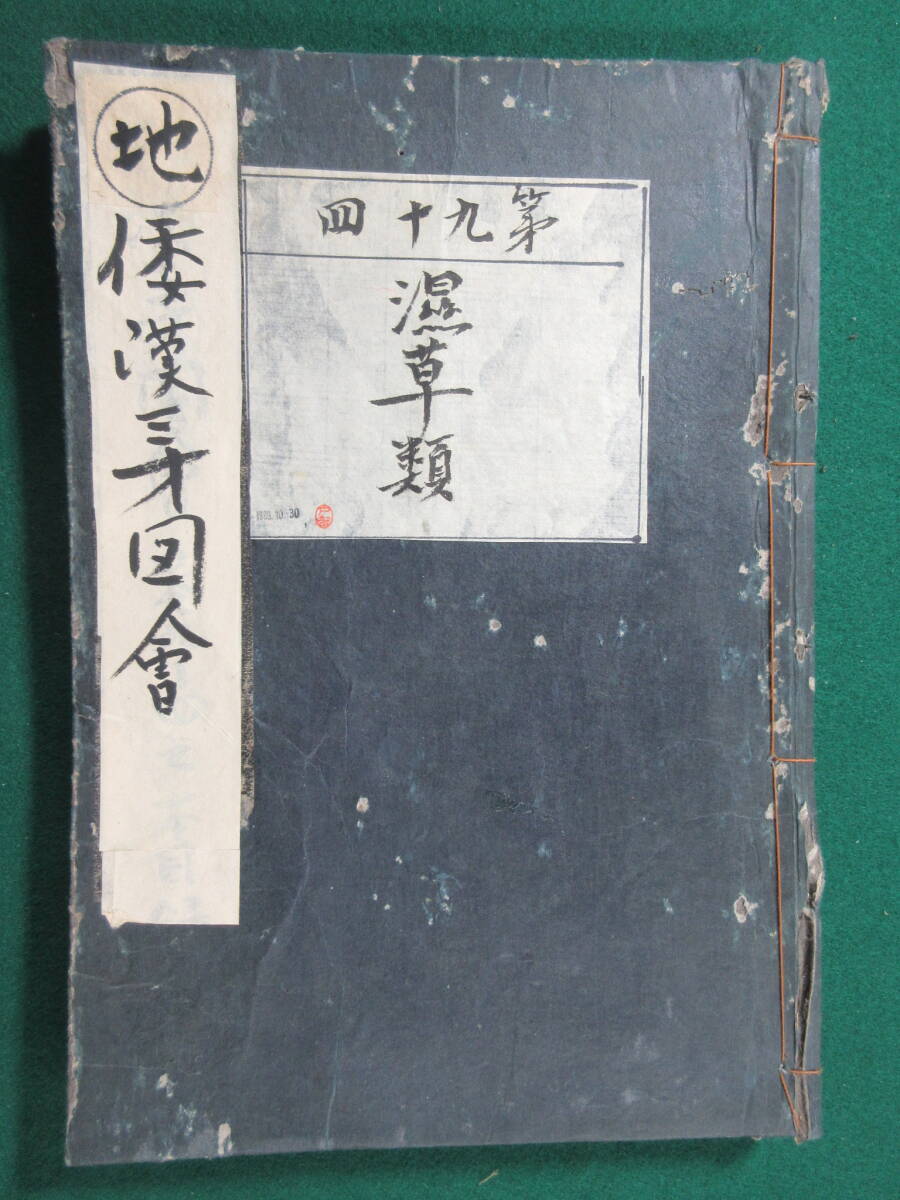 地
倭漢三才図會
第九十四
濕草類